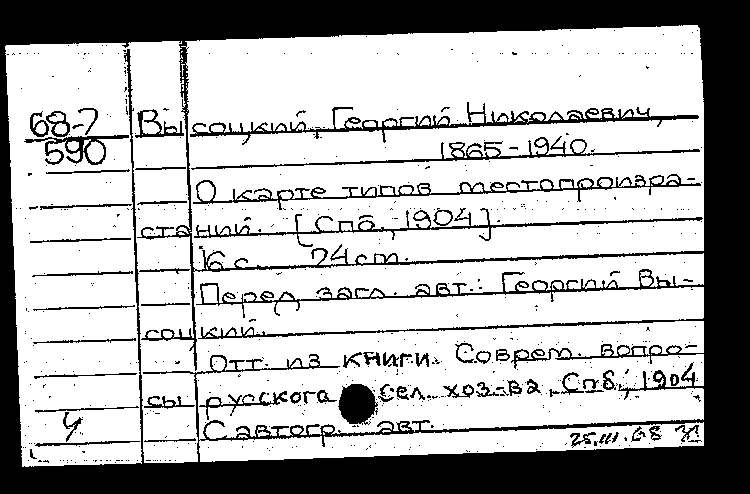 68-7 Высоцкий, Георгий Николаевич,
590 1865-1940.
О карте типов местопроизра-
станий. [Спб., 1904].
16 с. 24 cm.
Перед загл. авт.: Георгий Вы-
соцкий.
Отт. из книги. Соврем. вопро-
сы русскога сел. хоз-ва, Спб., 1904
С автогр. авт.
25.III.68